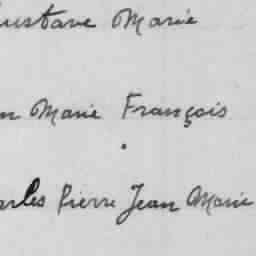 Gustave Marie
Marie François
Charles Pierre Jean Marie